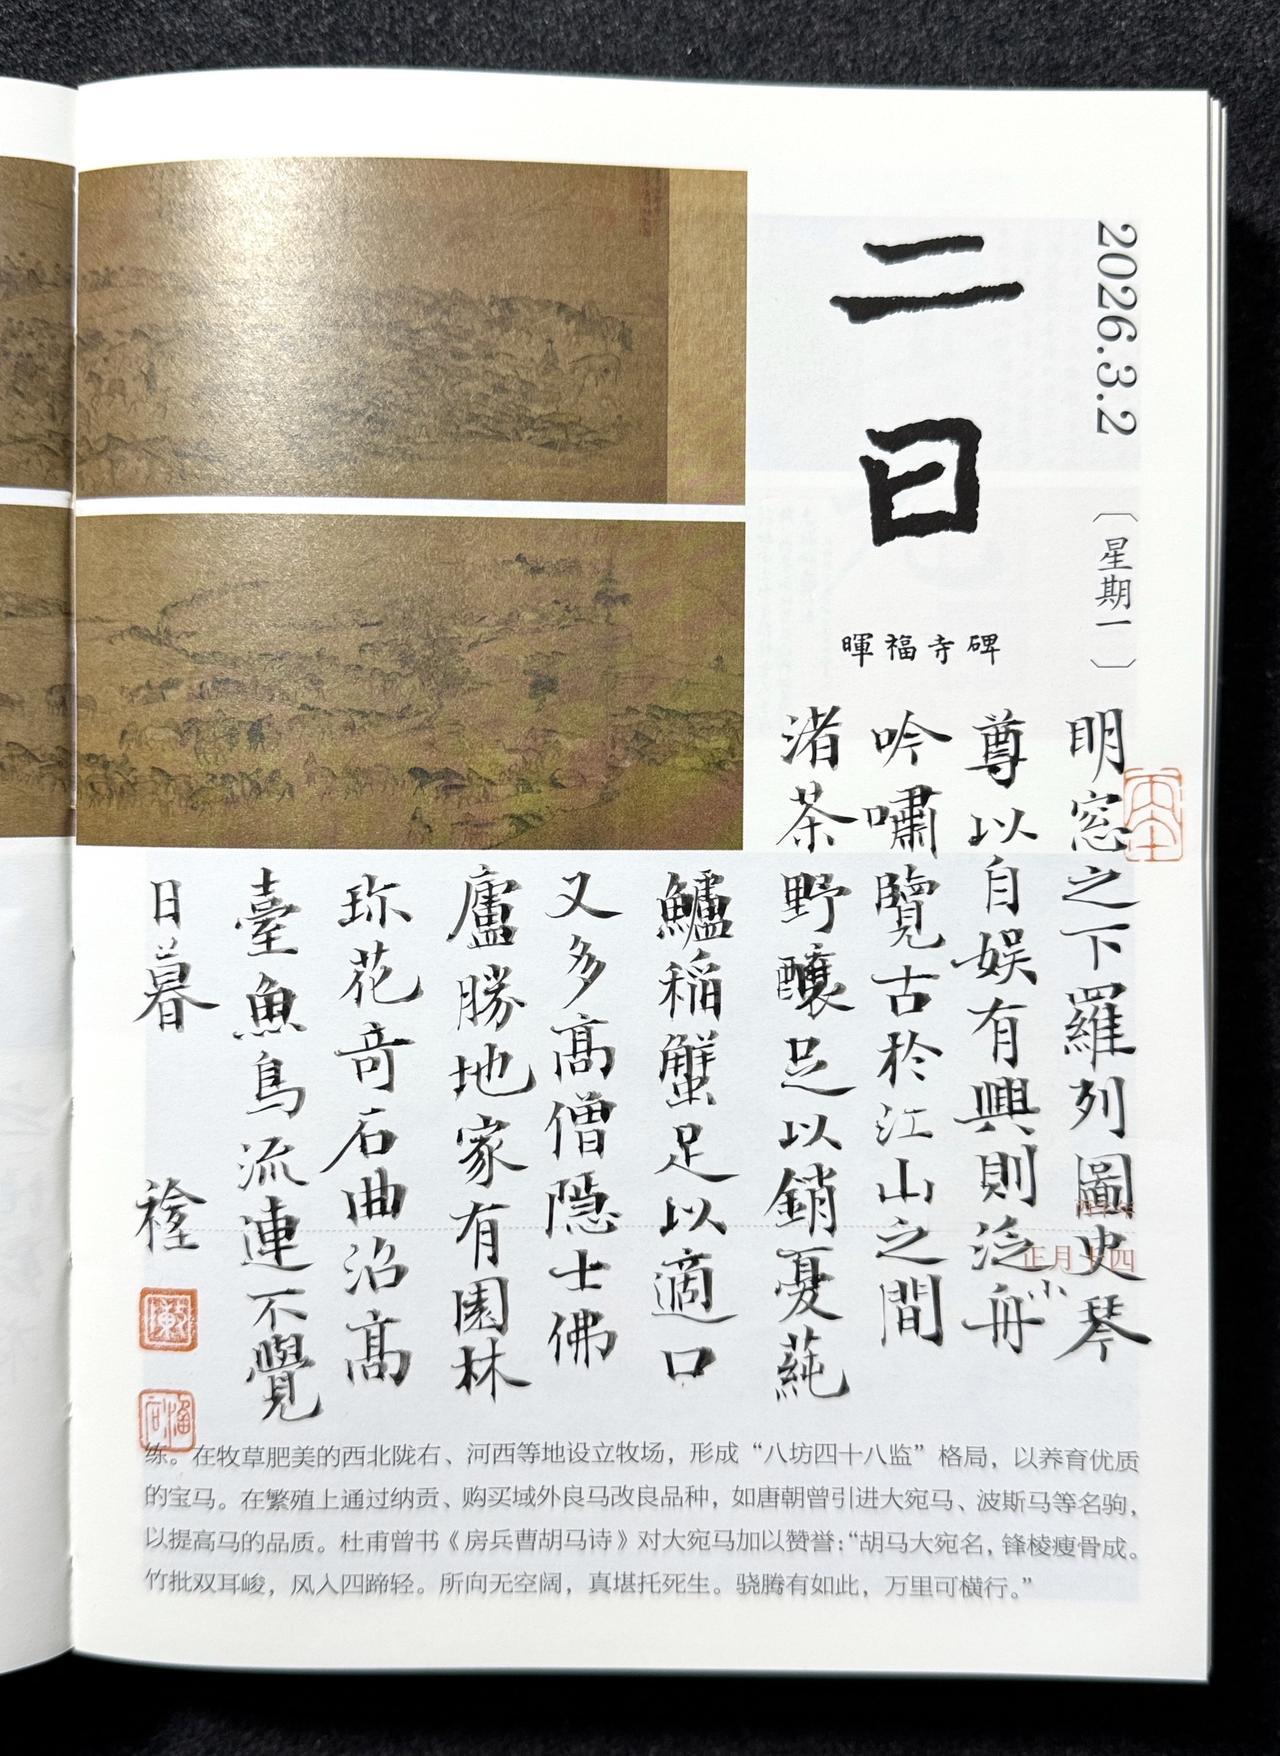 2026.3.2
〔星期一〕
二日
暉福寺碑
明窓之下羅列圖史琴
尊以自娱有興則泛小舟
吟嘯覽古於江山之間
渚茶野釀足以銷憂蓴
鱸稲蟹足以適口
又多高僧隠士佛
廬勝地家有園林
珎花奇石曲沼高
臺魚鳥流連不覺
日暮
正月十四
练。在牧草肥美的西北陇右、河西等地设立牧场，形成“八坊四十八监”格局，以养育优质
的宝马。在繁殖上通过纳贡、购买域外良马改良品种，如唐朝曾引进大宛马、波斯马等名驹，
以提高马的品质。杜甫曾书《房兵曹胡马诗》对大宛马加以赞誉：“胡马大宛名，锋棱瘦骨成。
竹批双耳峻，风入四蹄轻。所向无空阔，真堪托死生。骁腾有如此，万里可横行。”